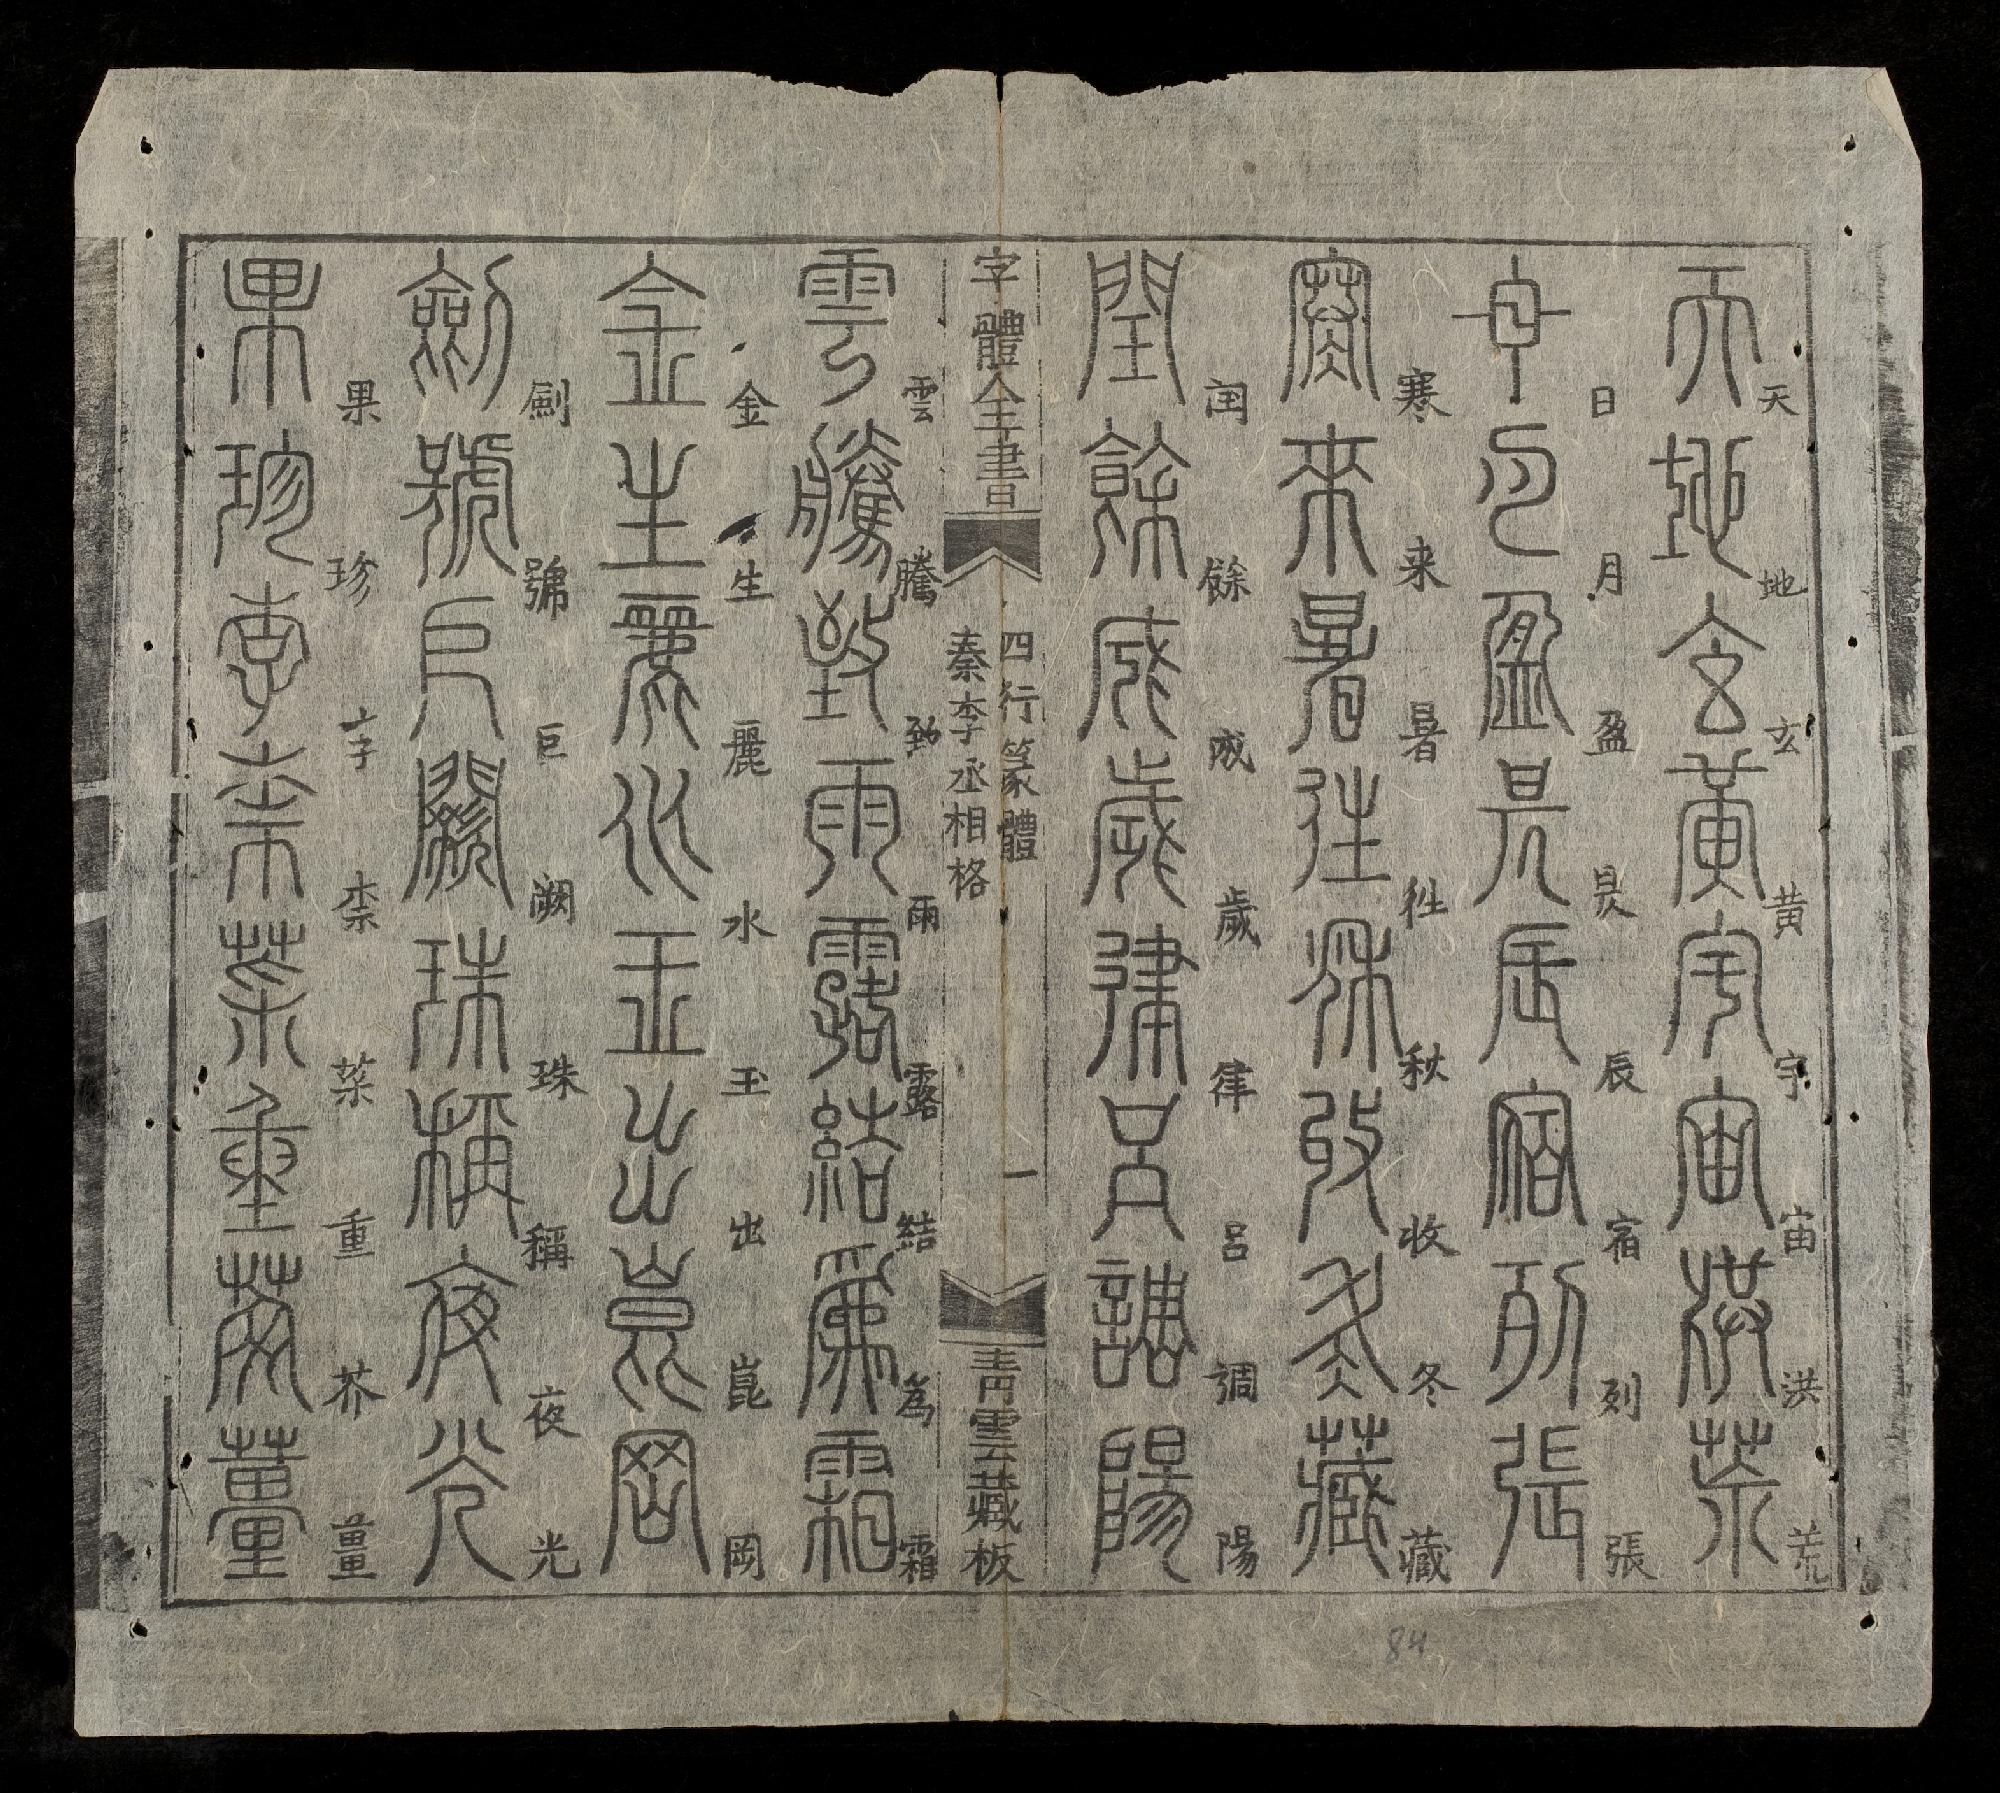 天地玄黃宇宙洪荒
天地玄黄宇宙洪荒
日月盈昃辰宿列張
日月盈昃辰宿列張
寒來暑往秋收冬藏
寒来暑徃秋收冬藏
閏餘成歲律呂調陽
閏餘成歲律呂調陽
字體全書
四行篆體
秦李丞相格
一
青雲藏板
雲騰致雨露結爲霜
雲騰致雨露結為霜
金生麗水玉出崑岡
金生麗水玉出崑岡
劍號巨闕珠稱夜光
劍號巨闕珠稱夜光
果珍李柰菜重芥薑
果珍李柰菜重芥薑
84